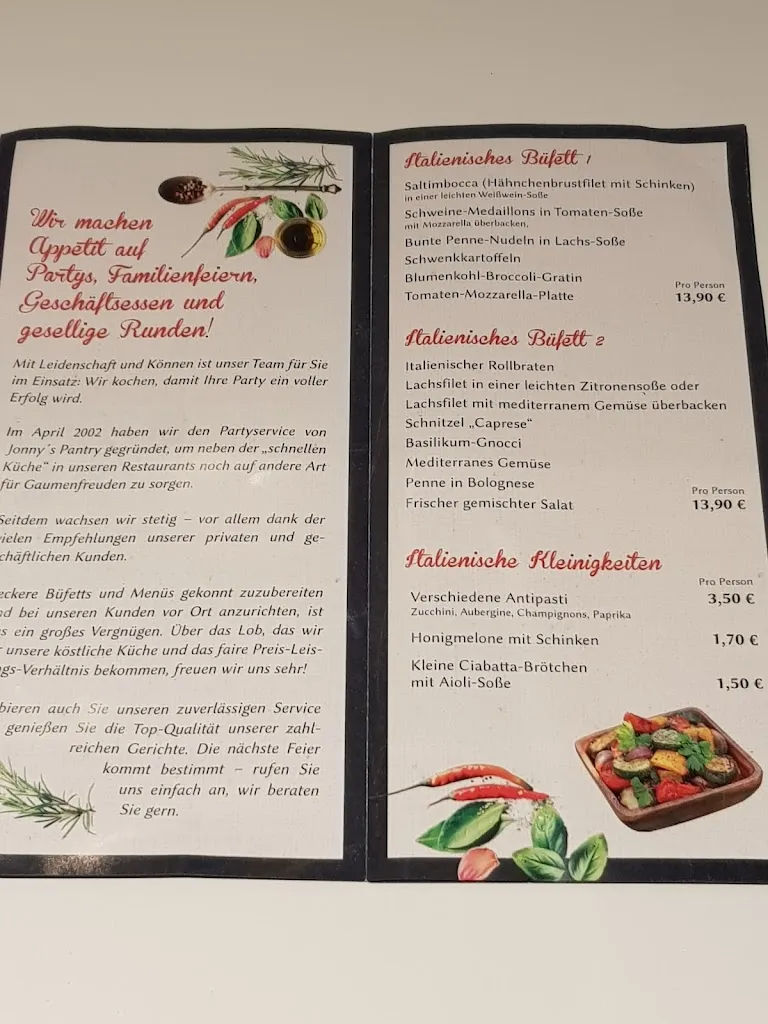 Wir machen
Appetit auf
Partys, Familienfeiern,
Geschäftsessen und
gesellige Runden!
Mit Leidenschaft und Können ist unser Team für Sie
im Einsatz: Wir kochen, damit Ihre Party ein voller
Erfolg wird.
Im April 2002 haben wir den Partyservice von
Jonny´s Pantry gegründet, um neben der „schnellen
Küche“ in unseren Restaurants noch auf andere Art
für Gaumenfreuden zu sorgen.
Seitdem wachsen wir stetig – vor allem dank der
vielen Empfehlungen unserer privaten und ge-
chäftlichen Kunden.
eckere Büfetts und Menüs gekonnt zuzubereiten
nd bei unseren Kunden vor Ort anzurichten, ist
s ein großes Vergnügen. Über das Lob, das wir
r unsere köstliche Küche und das faire Preis-Leis-
ngs-Verhältnis bekommen, freuen wir uns sehr!
bieren auch Sie unseren zuverlässigen Service
genießen Sie die Top-Qualität unserer zahl-
reichen Gerichte. Die nächste Feier
kommt bestimmt – rufen Sie
uns einfach an, wir beraten
Sie gern.
Italienisches Büfett 1
Saltimbocca (Hähnchenbrustfilet mit Schinken)
in einer leichten Weißwein-Soße
Schweine-Medaillons in Tomaten-Soße
mit Mozzarella überbacken,
Bunte Penne-Nudeln in Lachs-Soße
Schwenkkartoffeln
Blumenkohl-Broccoli-Gratin
Pro Person
Tomaten-Mozzarella-Platte 13,90 €
Italienisches Büfett 2
Italienischer Rollbraten
Lachsfilet in einer leichten Zitronensoße oder
Lachsfilet mit mediterranem Gemüse überbacken
Schnitzel „Caprese“
Basilikum-Gnocci
Mediterranes Gemüse
Penne in Bolognese
Pro Person
Frischer gemischter Salat 13,90 €
Italienische Kleinigkeiten
Pro Person
Verschiedene Antipasti 3,50 €
Zucchini, Aubergine, Champignons, Paprika
Honigmelone mit Schinken 1,70 €
Kleine Ciabatta-Brötchen
mit Aioli-Soße 1,50 €